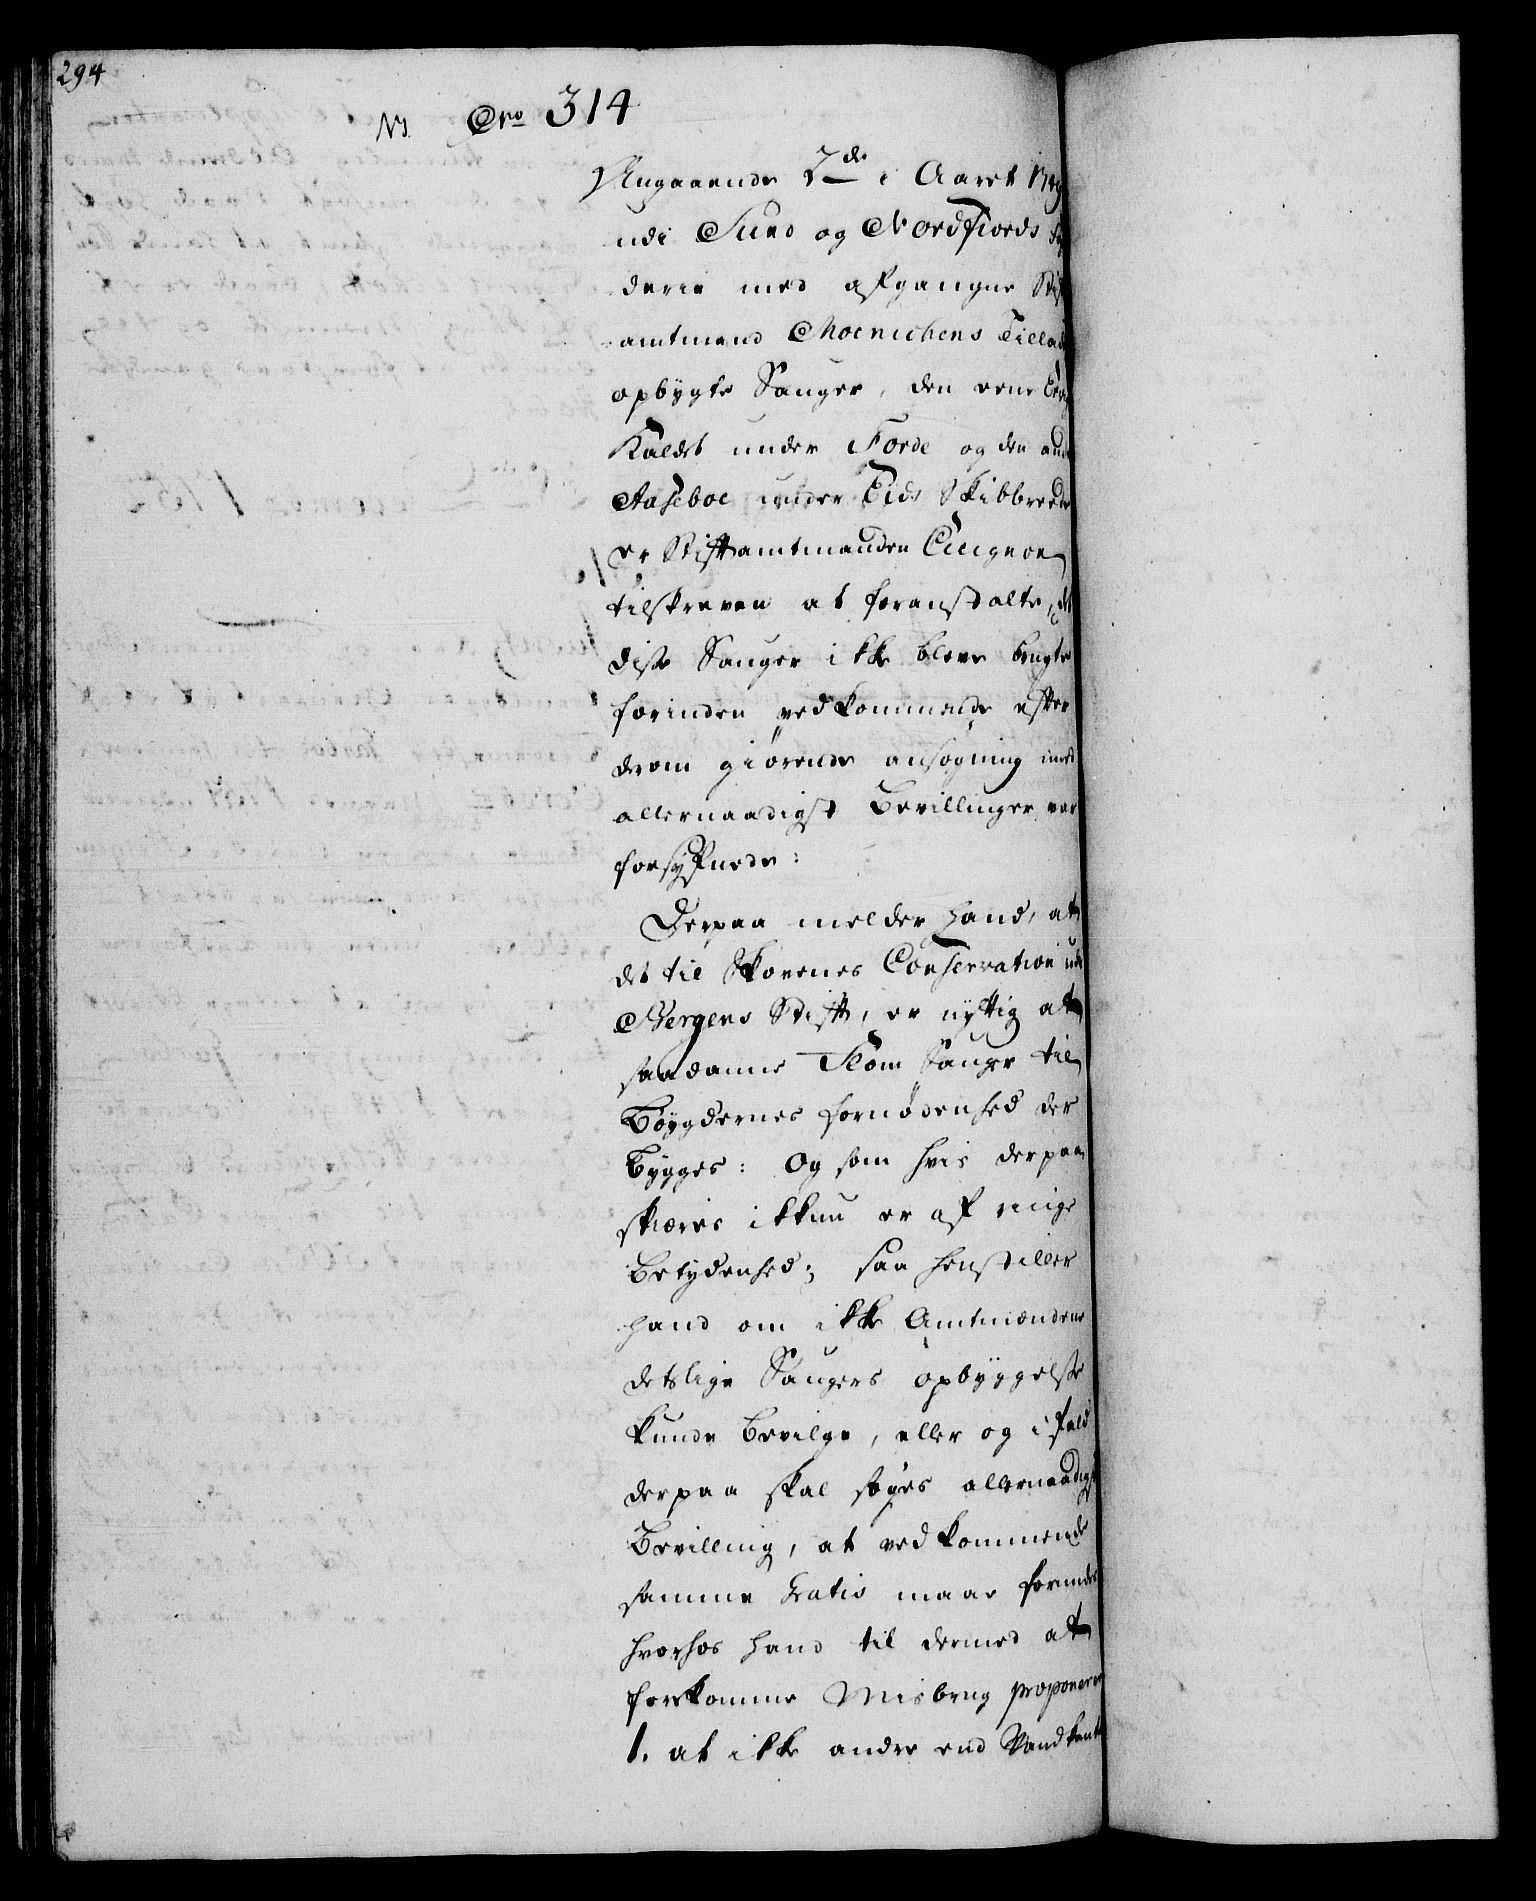 294
No 314
Angaaende 2de i Aaret
udi Sund og Nordfiords
derie med afgangne Stift
amtmand Moenichens Tillad
opbygte Sauger, den eene
Kaldet under Förde og den and
Aaseboe under Eids Skibbreede
er Stiftamtmanden Cicignon
tilskreven at foranstalte, at
disse Sauger ikke bleve brugte
forinden vedkommende efter
derom giörende ansögning med
allernaadigst Bevillinger var
forsÿnede:
Derpaa melder hand, at
det til Skovenes Conservation udi
Bergens Stift, er nÿttig at
saadanne Flom Sauger til
Böÿgdernes fornödenhed der
bÿgges: Og som hvis derpaa
skieres ikkun er af ringe
Betÿdenhed; saa henstiller
hand om ikke Amtmændene
deslige Saugers opbÿggelse
kunde bevilge, eller og i fald
derpaa skal söges allernaadigst
Bevilling, at vedkommende
samme Gratis maae forundes
hvorhos hand til dermed at
forekomme Misbrug proponerer
1. at ikke andre end Vand